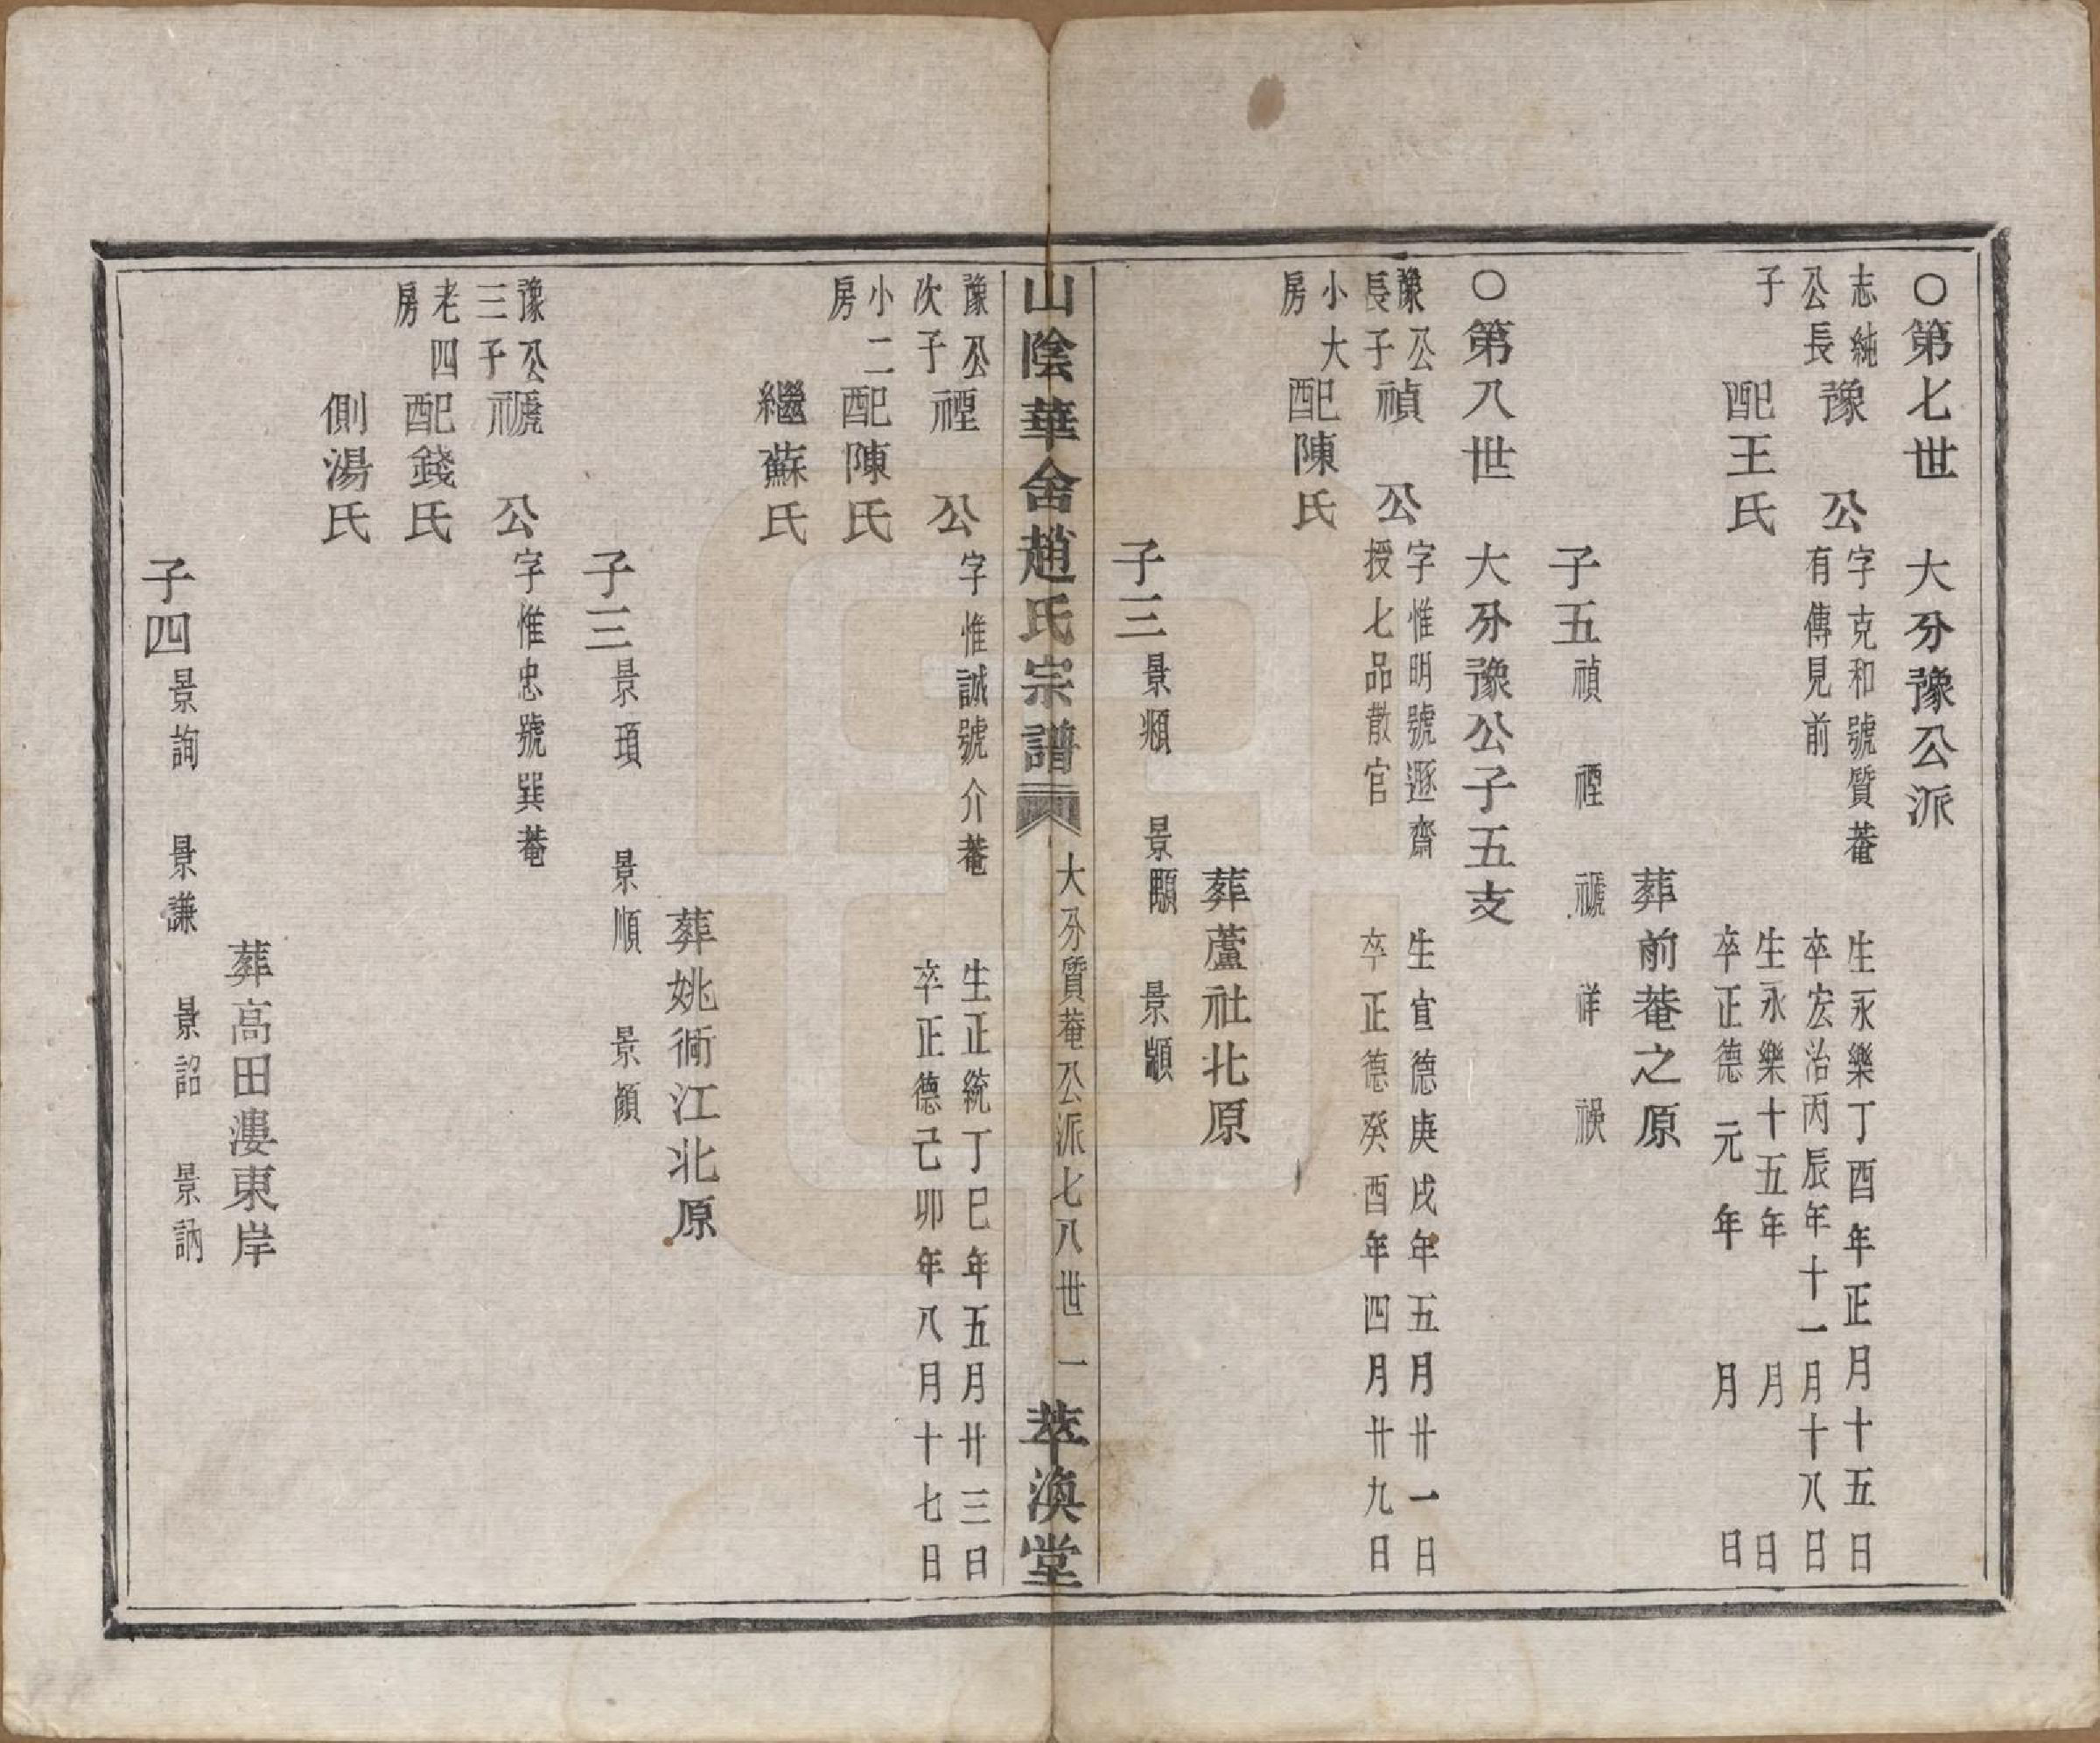 ○第七世　大分豫公派
志純
公長
子
豫　公
字克和號質菴
有傳見前
生永樂丁酉年正月十五日
卒宏治丙辰年十一月十八日
配王氏
生永樂十五年　月　日
卒正德元年　月　日
葬前菴之原
子五禎　禋　禠　祥　祦
○第八世　大分豫公子五支
豫公
長子
小大
房
禎　公
字惟明號遯齋
授七品散官
生宣德庚戌年五月廿一日
卒正德癸酉年四月廿九日
配陳氏
葬蘆社北原
子三景頫　景顒　景顓
山陰華舍趙氏宗譜
大分質菴公派七八世　一
萃渙堂
豫公
次子
小二
房
禋　公
字惟誠號介菴
生正統丁巳年五月廿三日
卒正德己卯年八月十七日
配陳氏
繼蘇氏
葬姚衕江北原
子三景頊　景順　景頠
豫公
三子
老四
房
禠　公
字惟忠號巽菴
配錢氏
側湯氏
葬高田漊東岸
子四景詢　景謙　景詔　景訥